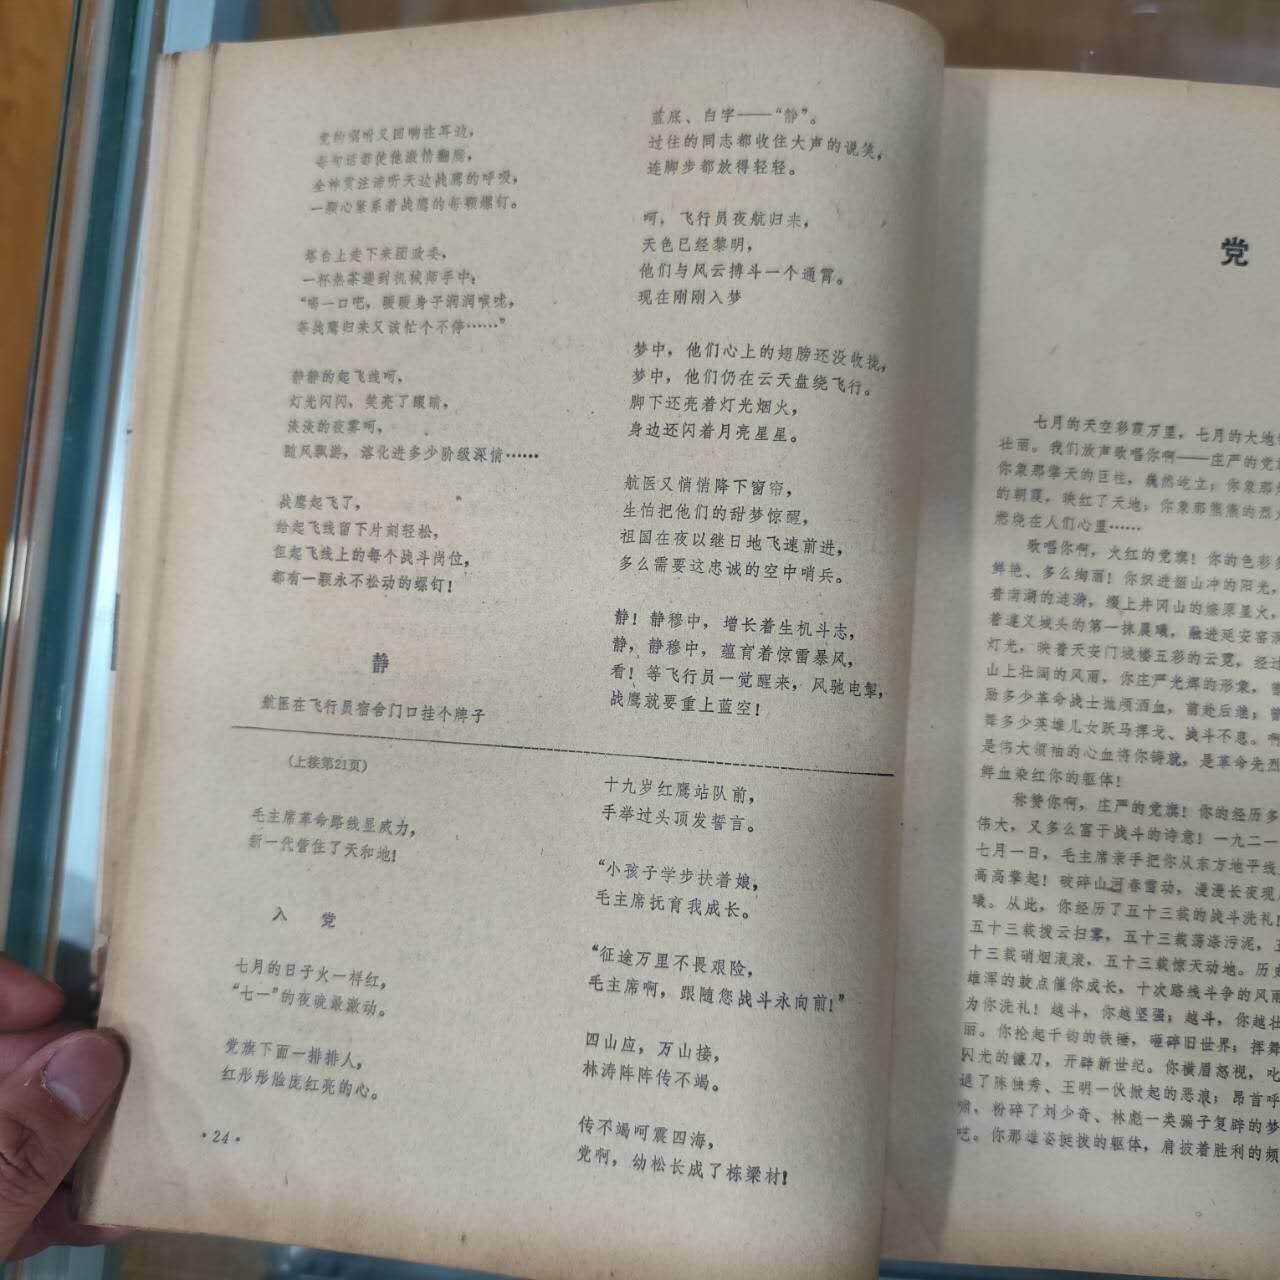 党的嘱咐又回响在耳边，
每句话都使他激情翻腾，
全神贯注谛听天边战鹰的呼吸，
一颗心紧系着战鹰的每颗螺钉。
塔台上走下来团政委，
一杯热茶递到机械师手中：
“喝一口吧，暖暖身子润润喉咙，
等战鹰归来又该忙个不停……”
静静的起飞线呵，
灯光闪闪，笑亮了眼睛，
淡淡的夜雾呵，
随风飘游，溶化进多少阶级深情……
战鹰起飞了，
给起飞线留下片刻轻松，
但起飞线上的每个战斗岗位，
都有一颗永不松动的螺钉！
静
航医在飞行员宿舍门口挂个牌子
蓝底、白字——“静”。
过往的同志都收住大声的说笑，
连脚步都放得轻轻。
呵，飞行员夜航归来，
天色已经黎明，
他们与风云搏斗一个通霄。
现在刚刚入梦
梦中，他们心上的翅膀还没收拢，
梦中，他们仍在云天盘绕飞行。
脚下还亮着灯光烟火，
身边还闪着月亮星星。
航医又悄悄降下窗帘，
生怕把他们的甜梦惊醒，
祖国在夜以继日地飞速前进，
多么需要这忠诚的空中哨兵。
静！静穆中，增长着生机斗志，
静，静穆中，蕴育着惊雷暴风，
看！等飞行员一觉醒来，风驰电掣，
战鹰就要重上蓝空！
（上接第21页）
毛主席革命路线显威力，
新一代管住了天和地！
入 党
七月的日子火一样红，
“七一”的夜晚最激动。
党旗下面一排排人，
红彤彤脸庞红亮的心。
·24·
十九岁红鹰站队前，
手举过头顶发誓言。
“小孩子学步扶着娘，
毛主席抚育我成长。
“征途万里不畏艰险，
毛主席啊，跟随您战斗永向前！”
四山应，万山接，
林涛阵阵传不竭。
传不竭呵震四海，
党啊，幼松长成了栋梁材！
党
七月的天空彩霞万里，七月的大地
壮丽。我们放声歌唱你啊——庄严的党
你象那擎天的巨柱，巍然屹立；你象那
的朝霞，映红了天地；你象那熊熊的烈
燃烧在人们心里……
歌唱你啊，火红的党旗！你的色彩
鲜艳、多么绚丽！你织进韶山冲的阳光，
着南湖的涟漪，缀上井冈山的燎原星火，
着遵义城头的第一抹晨曦，融进延安窑
灯光，映着天安门城楼五彩的云霓，经
山上壮阔的风雨，你庄严光辉的形象，
励多少革命战士抛颅洒血，前赴后继；
舞多少英雄儿女跃马挥戈、战斗不息。
是伟大领袖的心血将你铸就，是革命先烈
鲜血染红你的躯体！
称赞你啊，庄严的党旗！你的经历多
伟大，又多么富于战斗的诗意！一九二一
七月一日，毛主席亲手把你从东方地平线
高高擎起！破碎山河春雷动，漫漫长夜现
曦。从此，你经历了五十三载的战斗洗礼！
五十三载拨云扫雾，五十三载荡涤污泥，五
十三载硝烟滚滚，五十三载惊天动地。历史
雄浑的鼓点催你成长，十次路线斗争的风雨
为你洗礼！越斗，你越坚强；越斗，你越壮
丽。你抡起千钧的铁锤，砸碎旧世界；挥舞
闪光的镰刀，开辟新世纪。你横眉怒视，叱
退了陈独秀、王明一伙掀起的恶浪；昂首呼
啸，粉碎了刘少奇、林彪一类骗子复辟的梦
呓。你那雄姿挺拨的躯体，肩披着胜利的频